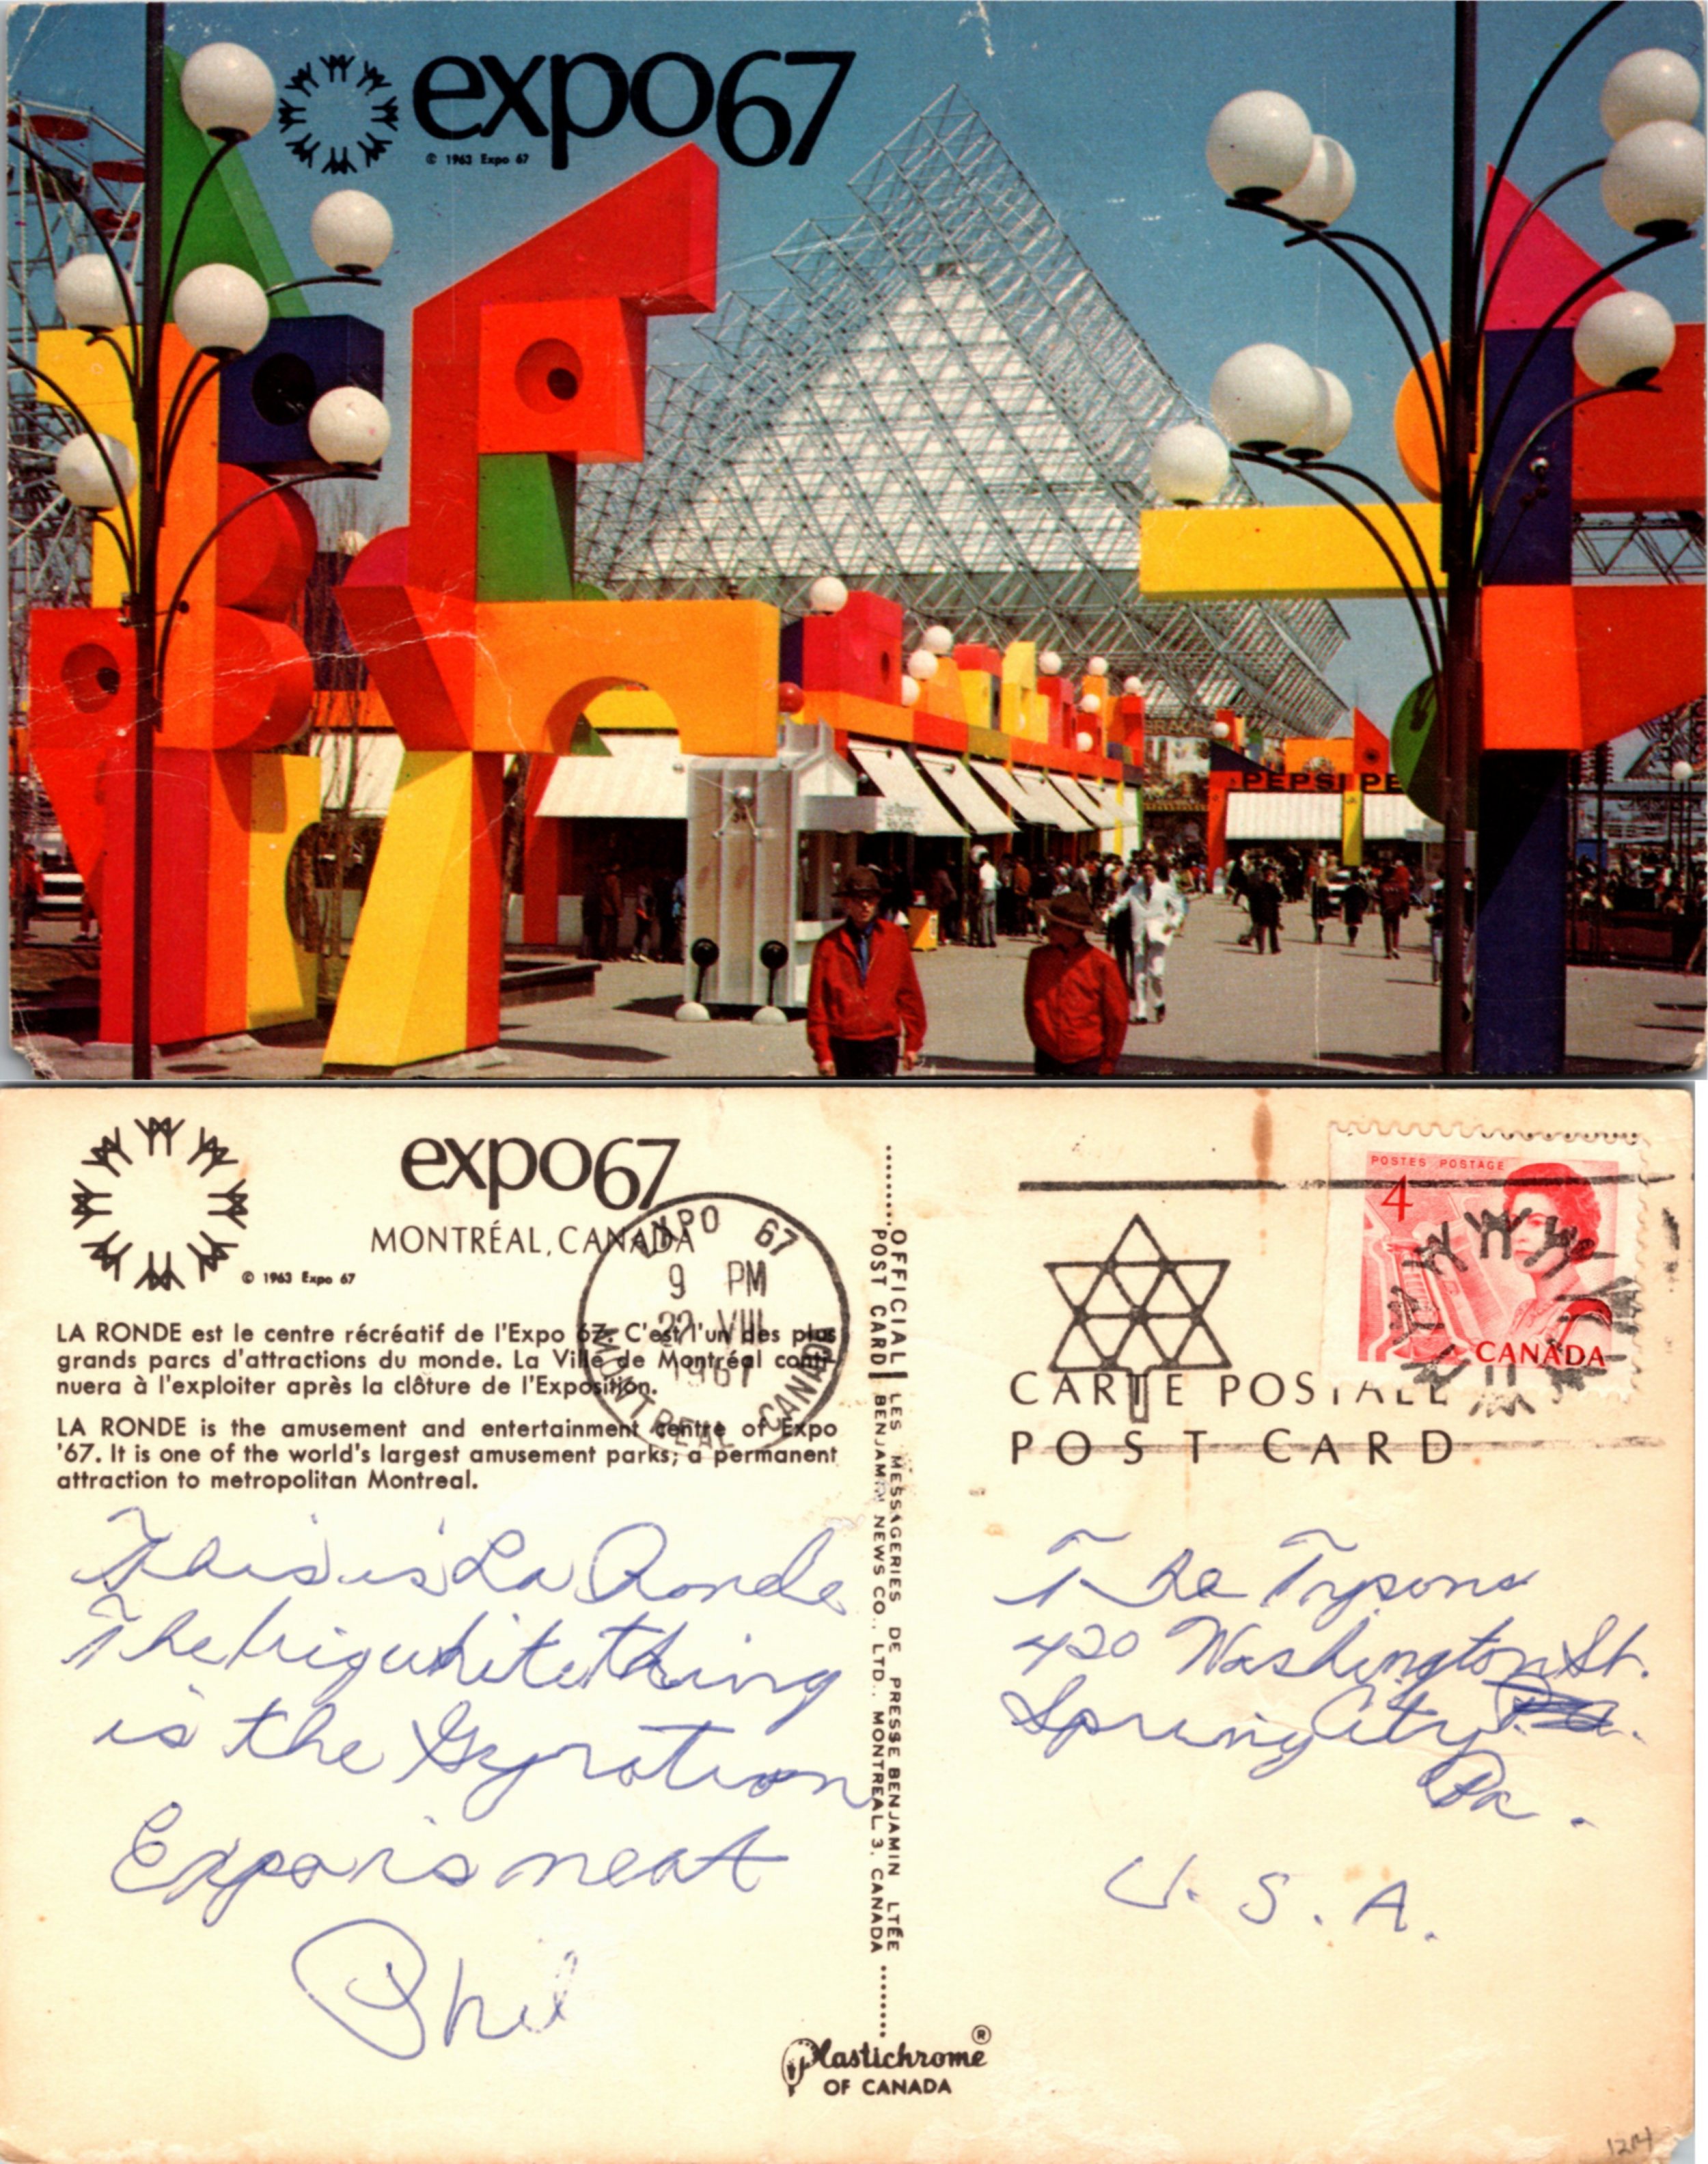 expo67
© 1963 Expo 67
PEPSI PE
expo67
MONTRÉAL, CANADA
© 1963 Expo 67
LA RONDE est le centre récréatif de l'Expo 67. C'est l'un des plus
grands parcs d'attractions du monde. La Ville de Montréal conti-
nuera à l'exploiter après la clôture de l'Exposition.
LA RONDE is the amusement and entertainment centre of Expo
'67. It is one of the world's largest amusement parks; a permanent
attraction to metropolitan Montreal.
EXPO 67
9 PM
22 VIII
1967
MONTREAL CANADA
This is La Ronde
The big white thing
is the Gyration
Expo is neat
Phil
OFFICIAL LES MESSAGERIES DE PRESSE BENJAMIN LTÉE
POST CARD BENJAMIN NEWS CO., LTD., MONTREAL 3, CANADA
Plastichrome ®
OF CANADA
POSTES POSTAGE
4
CANADA
CARTE POSTALE
POST CARD
The Tysons
420 Washington St.
Spring City Pa.
Pa.
U.S.A.
1214